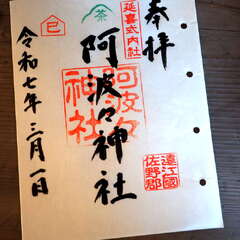 奉拝
延喜式内社
茶
阿波々神社
阿波々
神社
遠江國
佐野郡
巳
令和七年三月一日